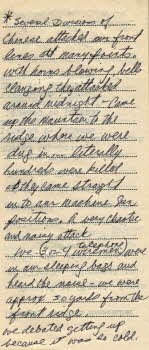 * Several Divisions of
Chinese attacked our front
lines at many points.
with horns blowing, bells
clanging they attacked
around midnight - Came
up the mountain to the
ridge where we were
dug in... literally
hundreds were killed
as they came straight
in to our machine gun
positions. A very chaotic
and noisy attack
We 8 or 9 telephone wiremen were
in our sleeping bags and
heard the noise - we were
approx 30 yards from the
front ridge.
we debated getting up
because it was so cold.